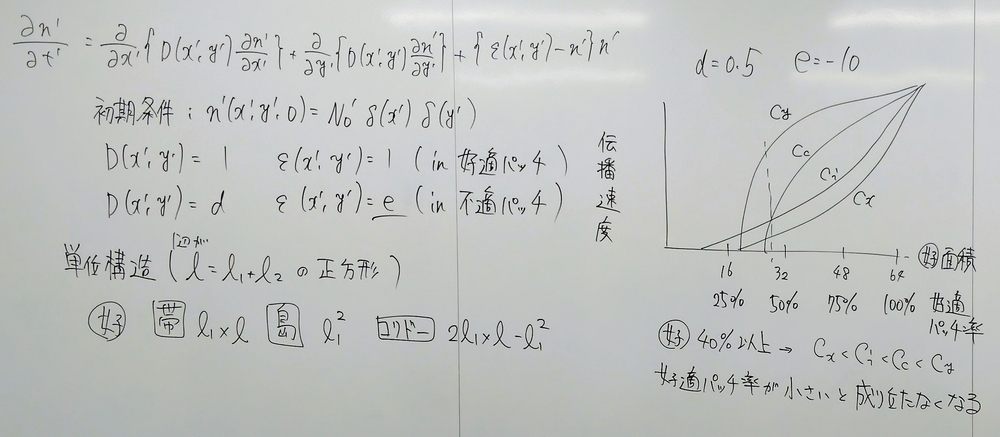 ∂n'/∂t' = ∂/∂x' { D(x', y') ∂n'/∂x' } + ∂/∂y' { D(x', y') ∂n'/∂y' } + { ε(x', y') − n' } n'
初期条件 : n'(x', y', 0) = N₀' δ(x') δ(y')
D(x', y') = 1 ε(x', y') = 1 (in 好適パッチ)
D(x', y') = d ε(x', y') = e (in 不適パッチ)
単位構造 (辺が l = l₁ + l₂ の正方形)
好 帯 l₁ × l 島 l₁² コリドー 2l₁ × l − l₁²
d = 0.5 e = −10
伝播速度
Cy
Cc
Ci
Cx
16 32 48 64 好面積
25% 50% 75% 100% 好適パッチ率
好 40%以上 → Cx < Ci < Cc < Cy
好適パッチ率が小さいと成り立たなくなる